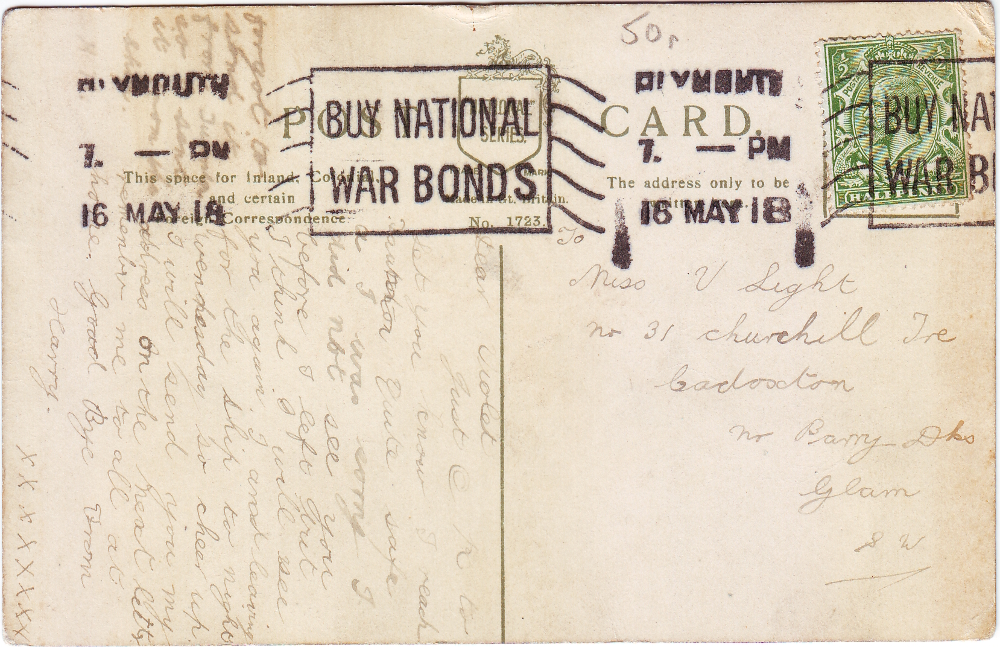 50p
PLYMOUTH
7. — PM
16 MAY 18
BUY NATIONAL
WAR BONDS
PLYMOUTH
7. — PM
16 MAY 18
BUY NAT
WAR B
POST CARD.
SERIES.
This space for Inland, Colonial,
and certain
Foreign Correspondence.
Made in Gt. Britain.
No. 1723.
The address only to be
To
Miss V Light
no 31 churchill Tre
Cadoxton
nr Barry Dks
Glam
S W
Dear Violet
Just a P C to
let you know I reach
quite safe
I was sorry I
did not see you
before I left but
I think I will see
you again I am leaving
for the ship to night
Wenesday so cheer up
I will send you my
address on the next letter
remember me to all at
home. Good Bye From
Harry.
x x x x x x x
forgot to